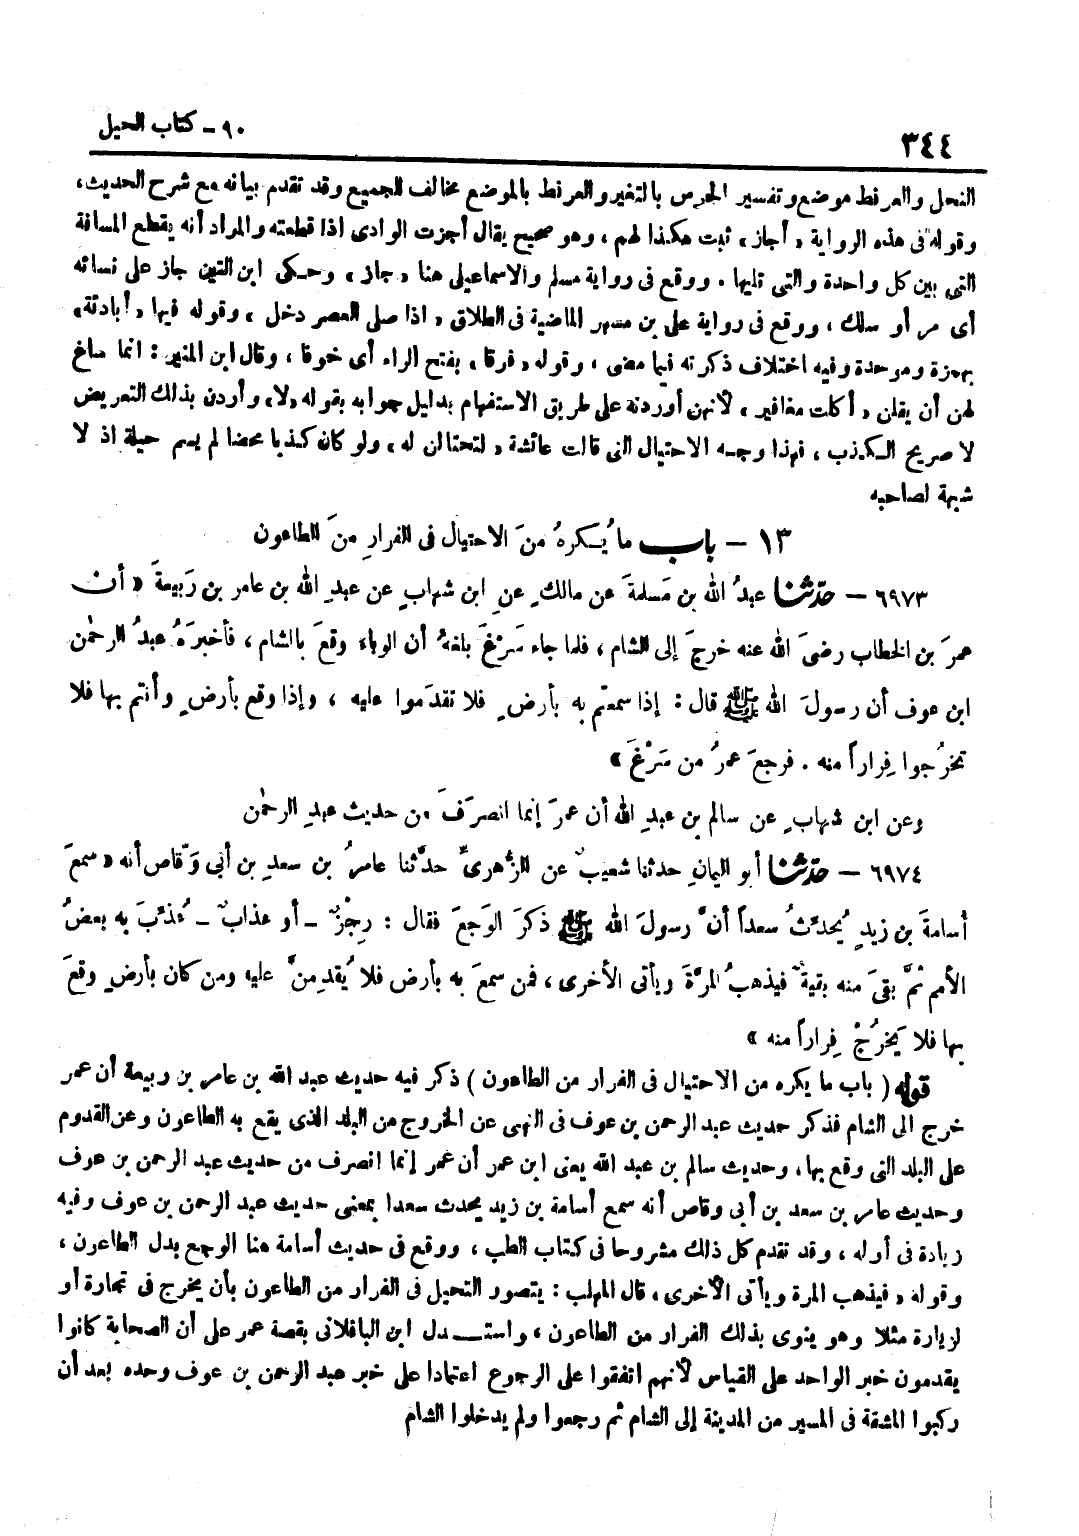 ٣٤٤
٩٠ - كتاب الحيل
النحل والعرفط موضع وتفسير الجرس بالتغير والعرفط بالموضع مخالف للجميع وقد تقدم بيانه مع شرح الحديث،
وقوله فى هذه الرواية « أجاز » ثبت هكذا لهم ، وهو صحيح يقال أجزت الوادى اذا قطعته والمراد أنه يقطع المسافة
التى بين كل واحدة والتى تليها . ووقع فى رواية مسلم والاسماعيلى هنا « جاز » وحكى ابن التين جاز على نسائه
أى مر أو سلك ، ووقع فى رواية على بن مسهر الماضية فى الطلاق « اذا صلى العصر دخل » وقوله فيها « أبادئه»
بهمزة وموحدة وفيه اختلاف ذكرته فيما مضى ، وقوله « فرقا » بفتح الراء أى خوفا ، وقال ابن المنير : انما ساغ
لهن أن يقلن « أكلت مغافير » لأنهن أوردنه على طريق الاستفهام بدليل جوابه بقوله «لا» وأردن بذلك التعريض
لا صريح الكذب ، فهذا وجه الاحتيال التى قالت عائشة « لتحتالن له » ولو كان كذبا محضا لم يسم حيلة اذ لا
شبهة لصاحبه
١٣ - باب ما يُكرهُ منَ الاحتيال فى الفرارِ منَ الطاعون
٦٩٧٣ - حدّثنا عبدُ الله بن مَسلمةَ عن مالكٍ عنِ ابن شهابٍ عن عبدِ الله بن عامر بن رَبيعةَ « أن
عمرَ بن الخطاب رضىَ الله عنه خرجَ إلى الشام ، فلما جاء سَرْغَ بلغهُ أن الوباء وقعَ بالشام ، فأخبرَهُ عبدُ الرحمٰن
ابن عوف أن رسولَ الله ﷺ قال : إذا سمعتم به بأرضٍ فلا تقدَموا عليه ، وإذا وقع بأرضٍ وأنتم بها فلا
تخرُجوا فِراراً منه . فرجعَ عمرُ من سَرْغَ »
وعن ابن شهابٍ عن سالم بن عبدِ الله أن عمرَ إنما انصرَفَ من حديث عبدِ الرحمٰن
٦٩٧٤ - حدّثنا أبو اليمانِ حدثنا شعيبٌ عن الزُّهرىِّ حدَّثنا عامرُ بن سعدِ بن أبى وَقاص أنه « سمعَ
أسامةَ بن زيدٍ يُحدِّثُ سعداً أنَّ رسولَ الله ﷺ ذكرَ الوَجعَ فقال : رِجْزٌ - أو عذابٌ - عُذِّبَ به بعضُ
الأمم ثمَّ بقىَ منه بقيةٌ فيذهبُ المرَّةَ ويأتى الأخرى ، فمن سمعَ به بأرض فلا يُقدِمنَّ عليه ومن كان بأرضٍ وقعَ
بها فلا يَخرُجْ فِراراً منه »
قوله ( باب ما يكره من الاحتيال فى الفرار من الطاعون ) ذكر فيه حديث عبد الله بن عامر بن ربيعة أن عمر
خرج الى الشام فذكر حديث عبد الرحمن بن عوف فى النهى عن الخروج من البلد الذى يقع به الطاعون وعن القدوم
على البلد التى وقع بها ، وحديث سالم بن عبد الله يعنى ابن عمر أن عمر إنما انصرف من حديث عبد الرحمن بن عوف
وحديث عامر بن سعد بن أبى وقاص أنه سمع أسامة بن زيد يحدث سعدا بمعنى حديث عبد الرحمن بن عوف وفيه
زيادة فى أوله ، وقد تقدم كل ذلك مشروحا فى كتاب الطب ، ووقع فى حديث أسامة هنا الوجع بدل الطاعون ،
وقوله « فيذهب المرة ويأتى الأخرى ، قال المهلب : يتصور التحيل فى الفرار من الطاعون بأن يخرج فى تجارة أو
لزيارة مثلا وهو ينوى بذلك الفرار من الطاعون ، واستدل ابن الباقلانى بقصة عمر على أن الصحابة كانوا
يقدمون خبر الواحد على القياس لأنهم اتفقوا على الرجوع اعتمادا على خبر عبد الرحمن بن عوف وحده بعد أن
ركبوا المشقة فى المسير من المدينة إلى الشام ثم رجعوا ولم يدخلوا الشام